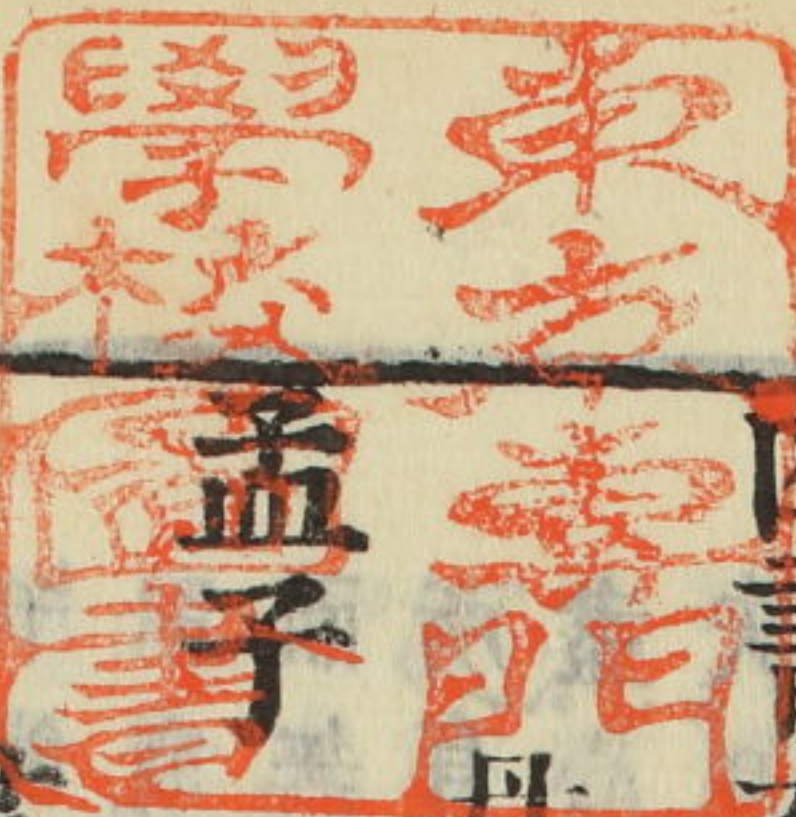 東京專門
學校圖書
孟子